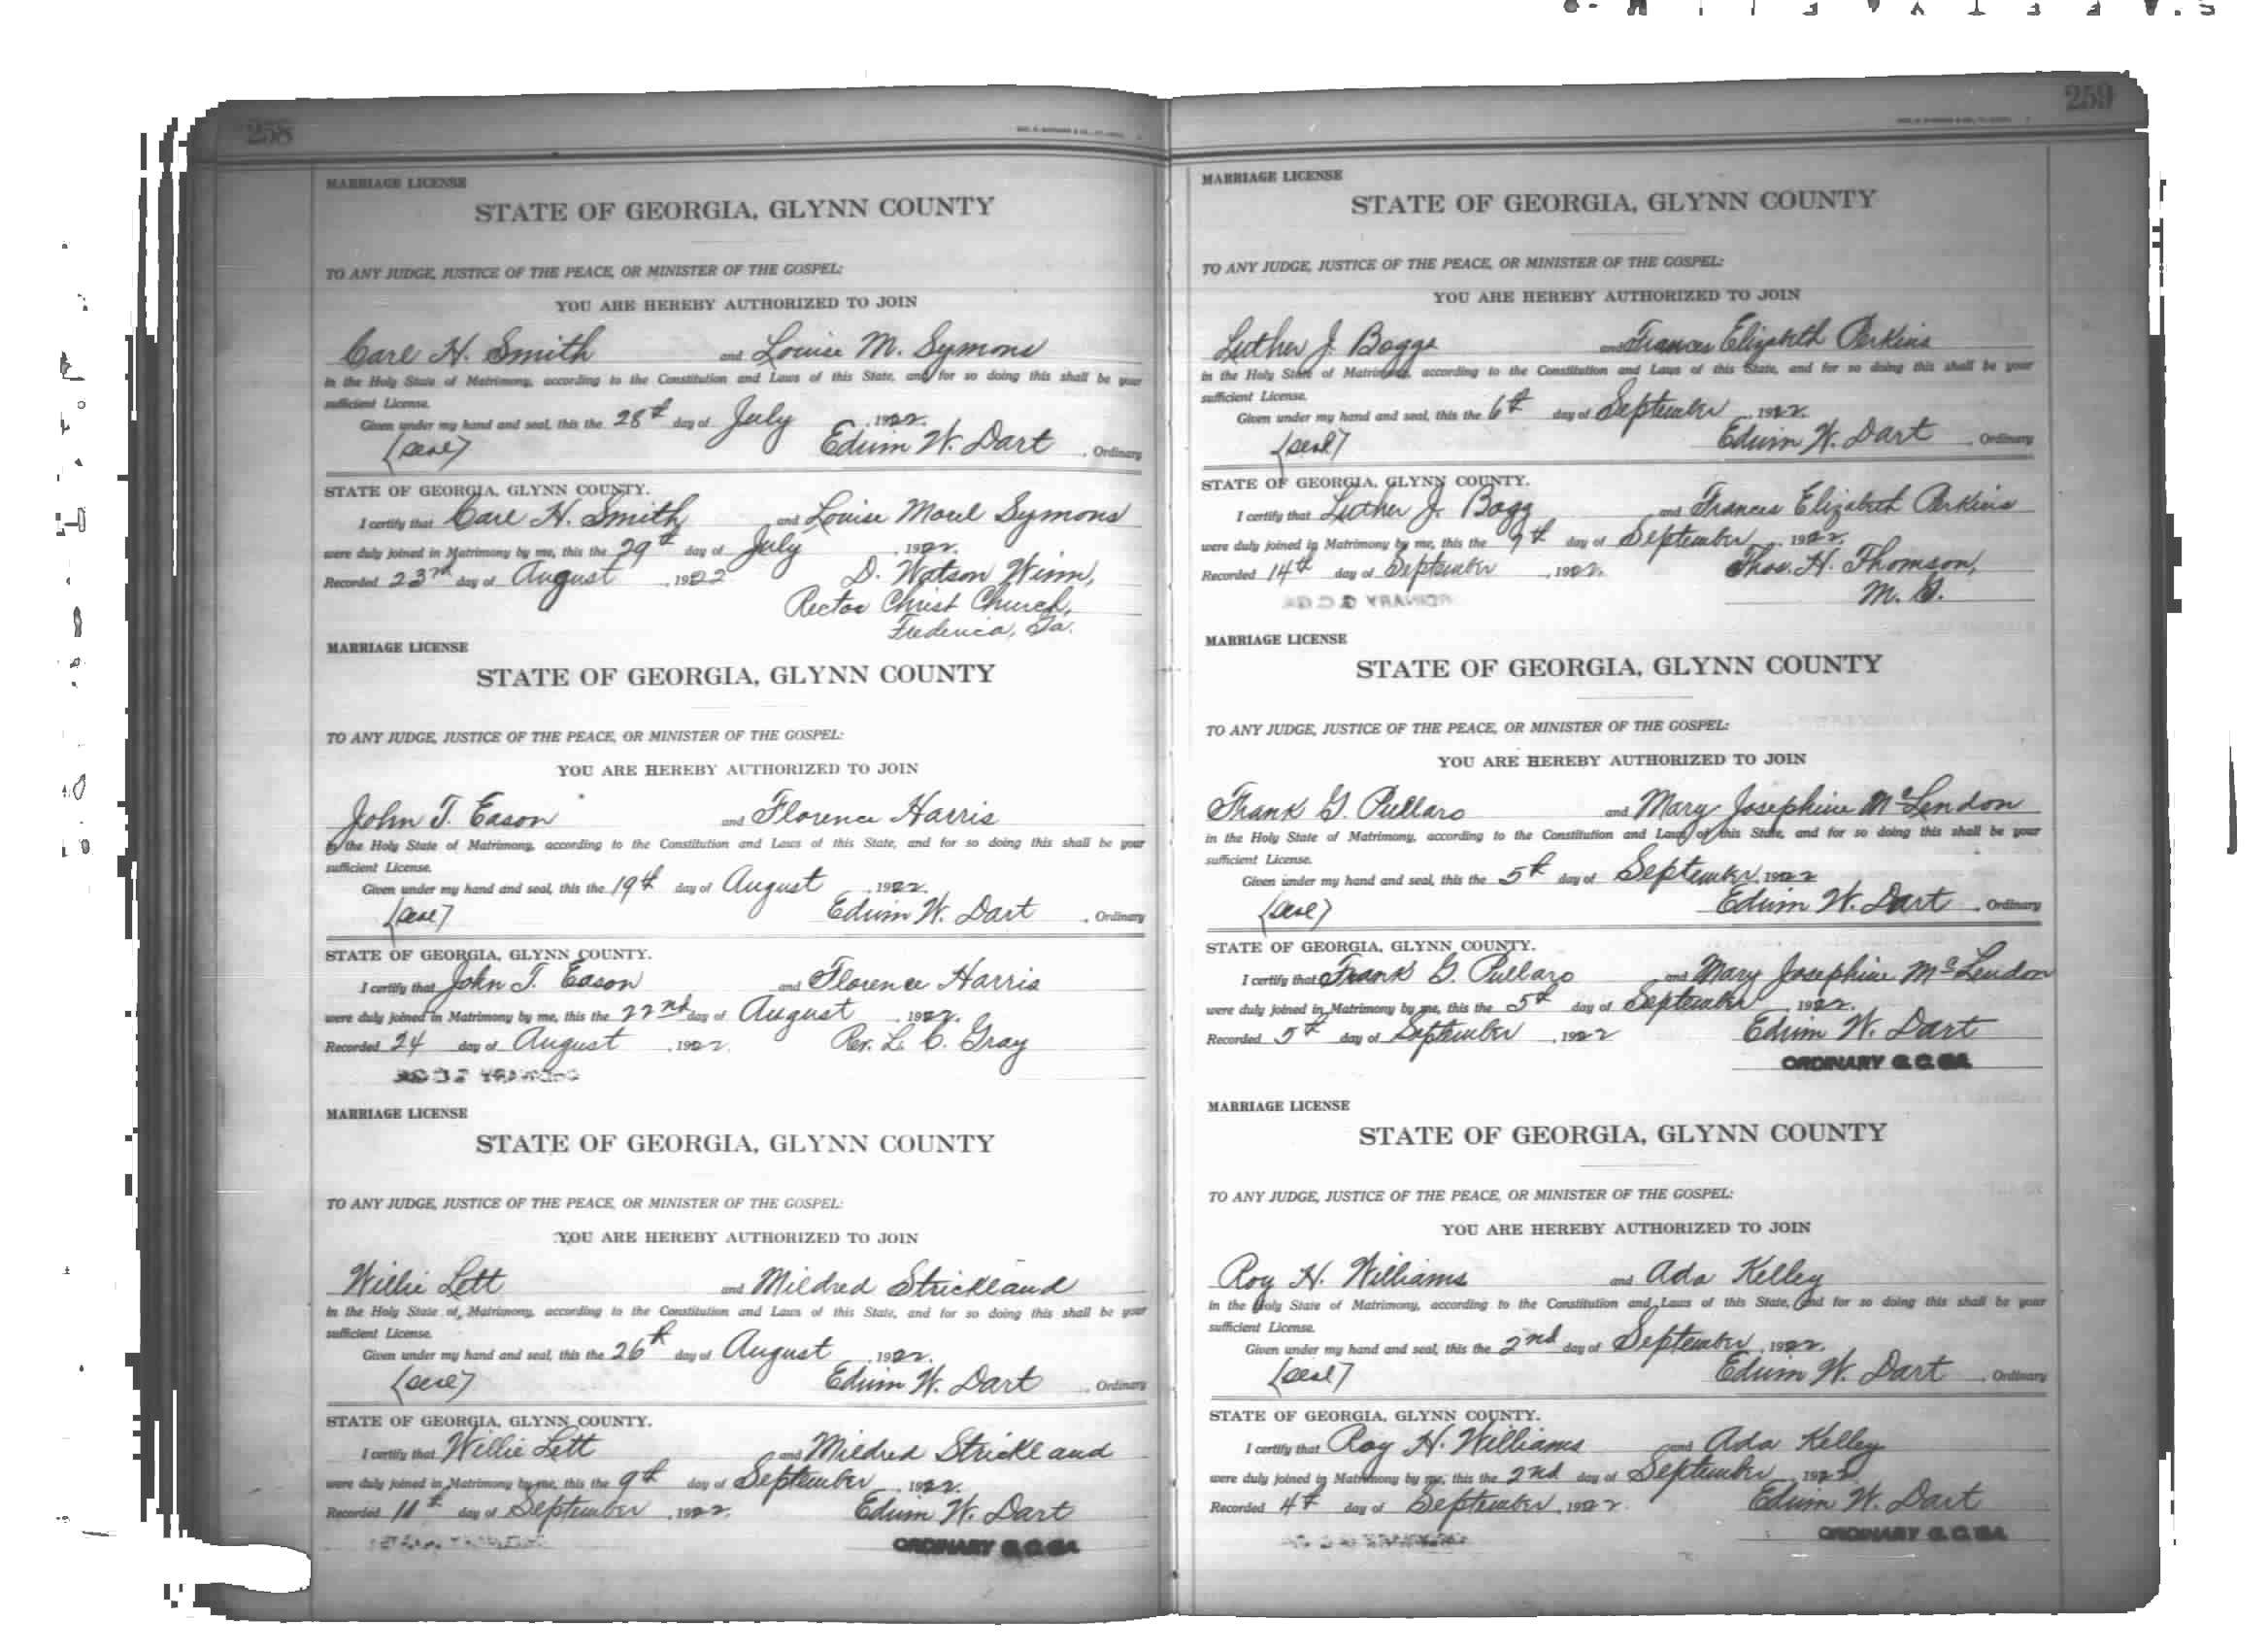 258
MARRIAGE LICENSE
STATE OF GEORGIA, GLYNN COUNTY
TO ANY JUDGE, JUSTICE OF THE PEACE, OR MINISTER OF THE GOSPEL:
YOU ARE HEREBY AUTHORIZED TO JOIN
Carl H. Smith and Louise M. Symons
in the Holy State of Matrimony, according to the Constitution and Laws of this State, and for so doing this shall be your
sufficient License.
Given under my hand and seal, this the 28th day of July, 1922.
(seal) Edwin W. Dart, Ordinary
STATE OF GEORGIA, GLYNN COUNTY.
I certify that Carl H. Smith and Louise Symons
were duly joined in Matrimony by me, this the 29th day of July, 1922.
Recorded 23rd day of August, 1922 D. Watson Winn,
Rector Christ Church,
Frederica, Ga.
MARRIAGE LICENSE
STATE OF GEORGIA, GLYNN COUNTY
TO ANY JUDGE, JUSTICE OF THE PEACE, OR MINISTER OF THE GOSPEL:
YOU ARE HEREBY AUTHORIZED TO JOIN
John T. Eason and Florence Harris
in the Holy State of Matrimony, according to the Constitution and Laws of this State, and for so doing this shall be your
sufficient License.
Given under my hand and seal, this the 19th day of August, 1922.
(seal) Edwin W. Dart, Ordinary
STATE OF GEORGIA, GLYNN COUNTY.
I certify that John T. Eason and Florence Harris
were duly joined in Matrimony by me, this the 22nd day of August, 1922.
Recorded 24 day of August, 1922. Rev. L. C. Gray
MARRIAGE LICENSE
STATE OF GEORGIA, GLYNN COUNTY
TO ANY JUDGE, JUSTICE OF THE PEACE, OR MINISTER OF THE GOSPEL:
YOU ARE HEREBY AUTHORIZED TO JOIN
Willie Lett and Mildred Strickland
in the Holy State of Matrimony, according to the Constitution and Laws of this State, and for so doing this shall be your
sufficient License.
Given under my hand and seal, this the 26th day of August, 1922.
(seal) Edwin W. Dart, Ordinary
STATE OF GEORGIA, GLYNN COUNTY.
I certify that Willie Lett and Mildred Strickland
were duly joined in Matrimony by me, this the 9th day of September, 1922.
Recorded 11th day of September, 1922. Edwin W. Dart
ORDINARY G. C. GA.
259
MARRIAGE LICENSE
STATE OF GEORGIA, GLYNN COUNTY
TO ANY JUDGE, JUSTICE OF THE PEACE, OR MINISTER OF THE GOSPEL:
YOU ARE HEREBY AUTHORIZED TO JOIN
Luther J. Boggs and Frances Elizabeth Perkins
in the Holy State of Matrimony, according to the Constitution and Laws of this State, and for so doing this shall be your
sufficient License.
Given under my hand and seal, this the 6th day of September, 1922.
(seal) Edwin W. Dart, Ordinary
STATE OF GEORGIA, GLYNN COUNTY.
I certify that Luther J. Bogg and Frances Elizabeth Perkins
were duly joined in Matrimony by me, this the 7th day of September, 1922.
Recorded 14th day of September, 1922. Thos. H. Thomson,
M. G.
MARRIAGE LICENSE
STATE OF GEORGIA, GLYNN COUNTY
TO ANY JUDGE, JUSTICE OF THE PEACE, OR MINISTER OF THE GOSPEL:
YOU ARE HEREBY AUTHORIZED TO JOIN
Frank G. Pullaro and Mary Josephine McLendon
in the Holy State of Matrimony, according to the Constitution and Laws of this State, and for so doing this shall be your
sufficient License.
Given under my hand and seal, this the 5th day of September, 1922
(seal) Edwin W. Dart, Ordinary
STATE OF GEORGIA, GLYNN COUNTY.
I certify that Frank G. Pullaro and Mary Josephine McLendon
were duly joined in Matrimony by me, this the 5th day of September, 1922.
Recorded 5th day of September, 1922 Edwin W. Dart
ORDINARY G. C. GA.
MARRIAGE LICENSE
STATE OF GEORGIA, GLYNN COUNTY
TO ANY JUDGE, JUSTICE OF THE PEACE, OR MINISTER OF THE GOSPEL:
YOU ARE HEREBY AUTHORIZED TO JOIN
Roy H. Williams and Ada Kelley
in the Holy State of Matrimony, according to the Constitution and Laws of this State, and for so doing this shall be your
sufficient License.
Given under my hand and seal, this the 2nd day of September, 1922.
(seal) Edwin W. Dart, Ordinary
STATE OF GEORGIA, GLYNN COUNTY.
I certify that Roy H. Williams and Ada Kelley
were duly joined in Matrimony by me, this the 2nd day of September, 1922
Recorded 4th day of September, 1922. Edwin W. Dart
ORDINARY G. C. GA.